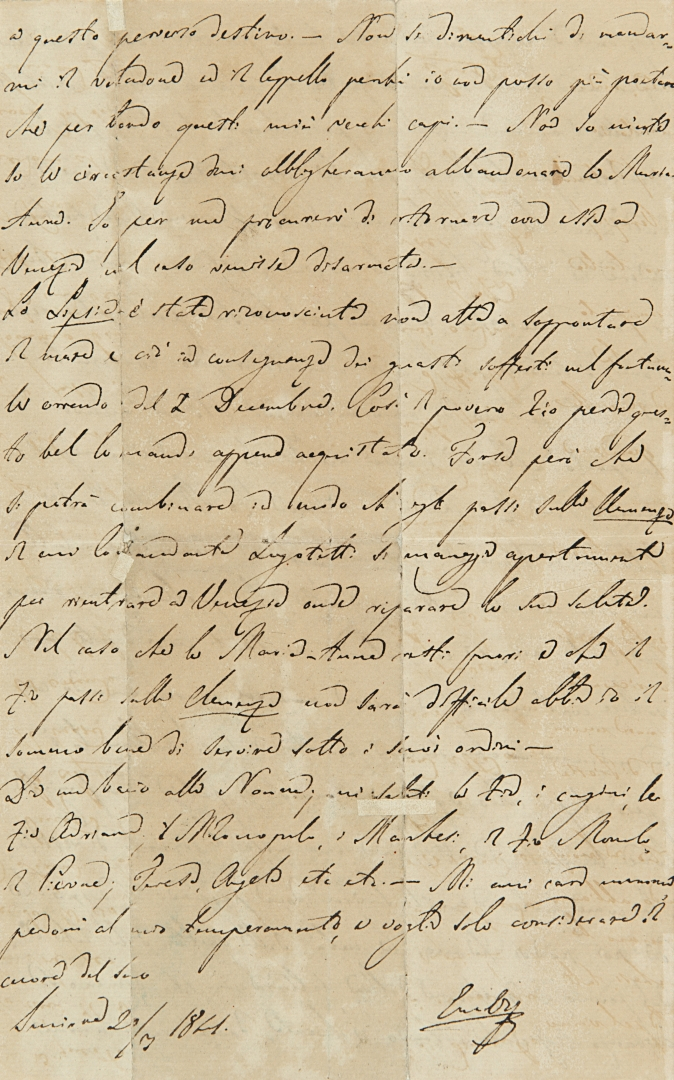 a questo perverso destino. — Non si dimentichi di mandar-
mi il ed il perchè io non posso più portare
che per bordo questi miei vecchi capi. — Non so niente
se le circostanze ci obbligheranno abbandonare la Maria
Anna. Io per me procurerò di ritornare con essa a
Venezia nel caso venisse disarmata. —
La Lipsia è stata riconosciuta non atta a sopportare
il mare e ciò in conseguenza dei guasti sofferti nel fortuna-
le orrendo del 2 Decembre. Così il povero Zio perde ques-
to bel comando appena acquistato. Forse però che
si potrà combinare in modo ch'egli passi sulla Clemenza
il cui Comandante Logotetti si maneggia apertamente
per rientrare a Venezia onde riparare la sua salute.
Nel caso che la Maria-Anna resti fuori e che il
Zio passi sulla Clemenza non sarà difficile abbia io il
sommo bene di servire sotto i suoi ordini —
Dia un bacio alla Nonna; mi saluti la Zia, i cugini, la
Zia Adriana, i, il Zio
il; Teresa, Angelo etc etc. — Mi ami cara mamma,
perdoni al mio temperamento, e voglia solo considerare il
cuore del suo
Smirne 29/3 1841.
Emilio